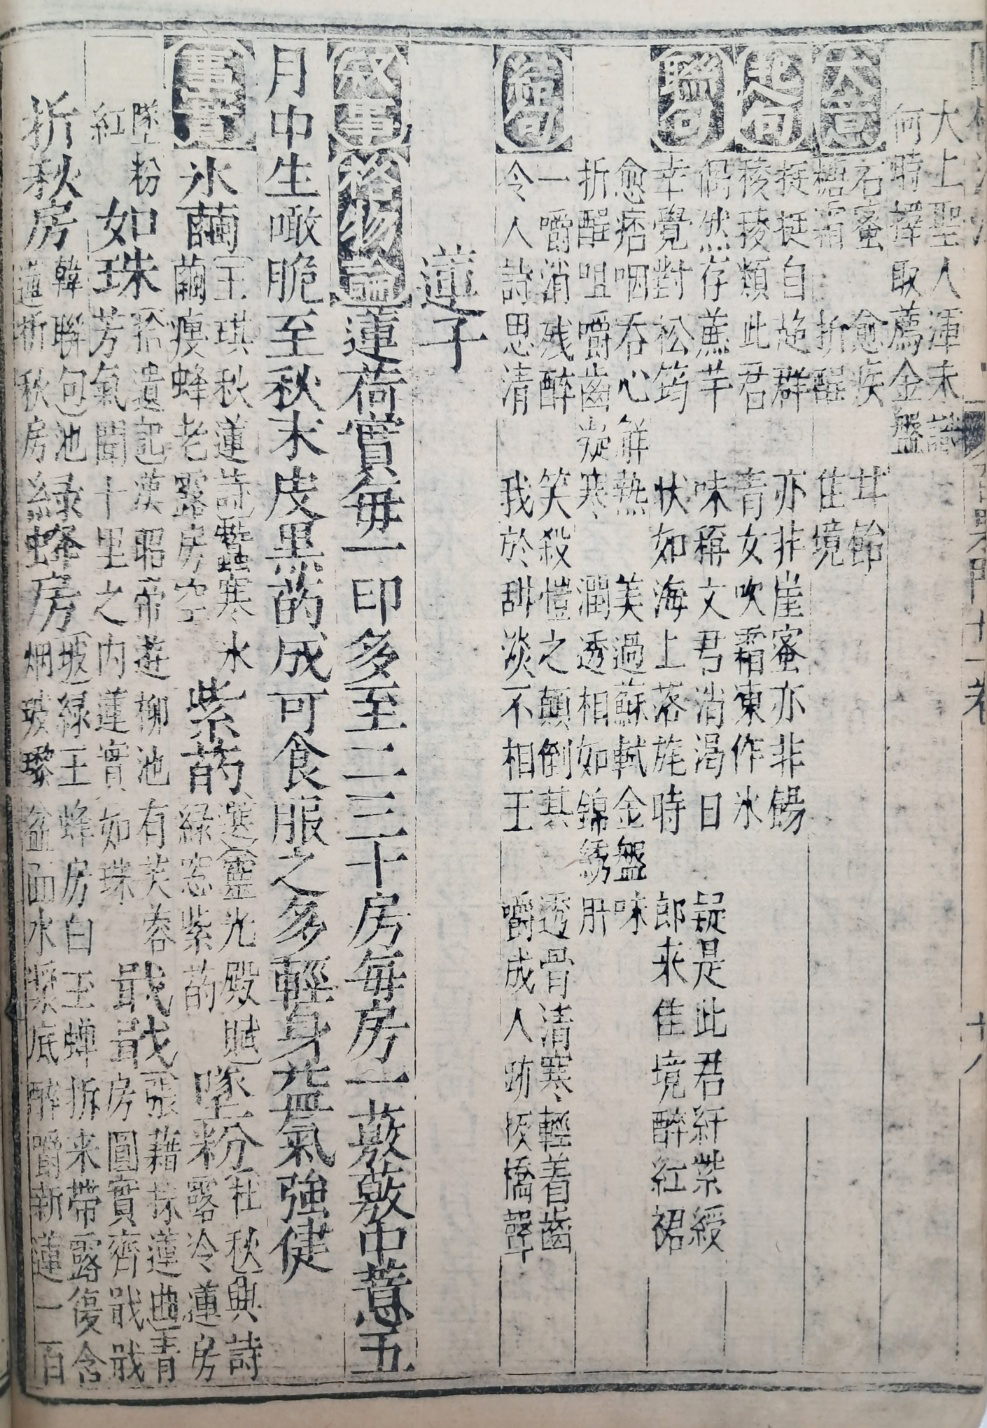 大上聖人渾未識
何時擇取薦金盤
大意
石蜜　愈疾　甘飴
糖霜　析酲　佳境
起句
挺挺自超群　亦非崖蜜亦非餳
稜稜類此君　青女吹霜凍作冰
聯句
儼然存蔗芉　味稱文君消渴日　疑是此君紆紫綬
幸覺對松筠　狀如海上落旄時　郎來佳境醉紅裙
愈痞咽吞心鮮熱　美過蘇軾金盤味
折酲咀嚼齒凝寒　潤透相如錦綉肝
結句
一嚼消殘醉　笑殺愷之顛倒甚　透骨清寒輕着齒
令人詩思清　我於甜淡不相王　嚼成人跡板橋聲
蓮子
叙事格物論蓮荷實每一印多至二三十房每房一菂菂中薏五
月中生噉脆至秋末皮黑菂成可食服之多輕身益氣強健
事實
氷繭王琪秋蓮詩蠶寒水繭瘦蜂老露房空紫菂選靈光殿賦綠窓紫菂墜粉杜秋興詩露冷蓮房
墜粉紅如珠拾遺記漢昭帝遊柳池有芙蓉芳氣聞十里之内蓮實如珠戢戢張藉採蓮曲青房圓實齊戢戢
折秋房韓聯包池蓮折秋房綠蜂房坡綠玉蜂房白玉蟬拆来帶露復含烟玻瓈盆面水漿底醉嚼新蓮一百